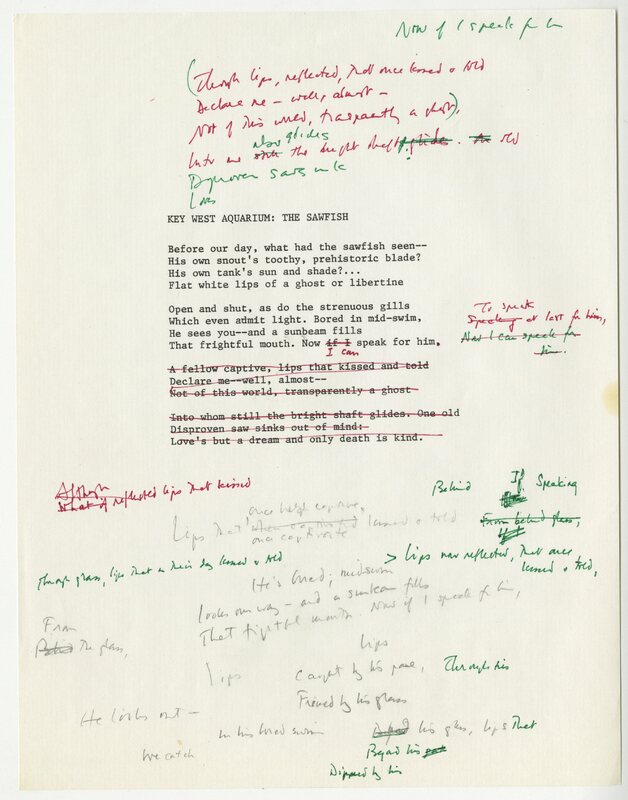 Now if I speak for him
(Though lips, reflected, that once kissed & told
Declare me – well, almost –
Not of this world, transparently a ghost),
also glides
Into me still the bright shaft glides. An old
Disproven saw sinks
Love
KEY WEST AQUARIUM: THE SAWFISH
Before our day, what had the sawfish seen--
His own snout's toothy, prehistoric blade?
His own tank's sun and shade?...
Flat white lips of a ghost or libertine
Open and shut, as do the strenuous gills
Which even admit light. Bored in mid-swim,
He sees you--and a sunbeam fills
That frightful mouth. Now if I speak for him,
I can
To speak
Speaking at last for him,
Now I can speak for
him.
A fellow captive, lips that kissed and told
Declare me--well, almost--
Not of this world, transparently a ghost
Into whom still the bright shaft glides. One old
Disproven saw sinks out of mind:
Love's but a dream and only death is kind.
Although
What if reflected lips that kissed
Behind
If Speaking
From behind glass,
once held captive,
Lips that when captivated kissed & told
once captivate
> Lips now reflected, that once
kissed & told,
Through glass, lips that in their day kissed & told
He's bored; midswim
looks our way – and a sunbeam fills
That frightful mouth. Now if I speak for him,
From
Behind the glass,
lips
lips
Caught by his pane, Through his
Framed by his glass
He looks out –
In his bored swim
his glass, lips that
We catch
Beyond his
Dipped by his